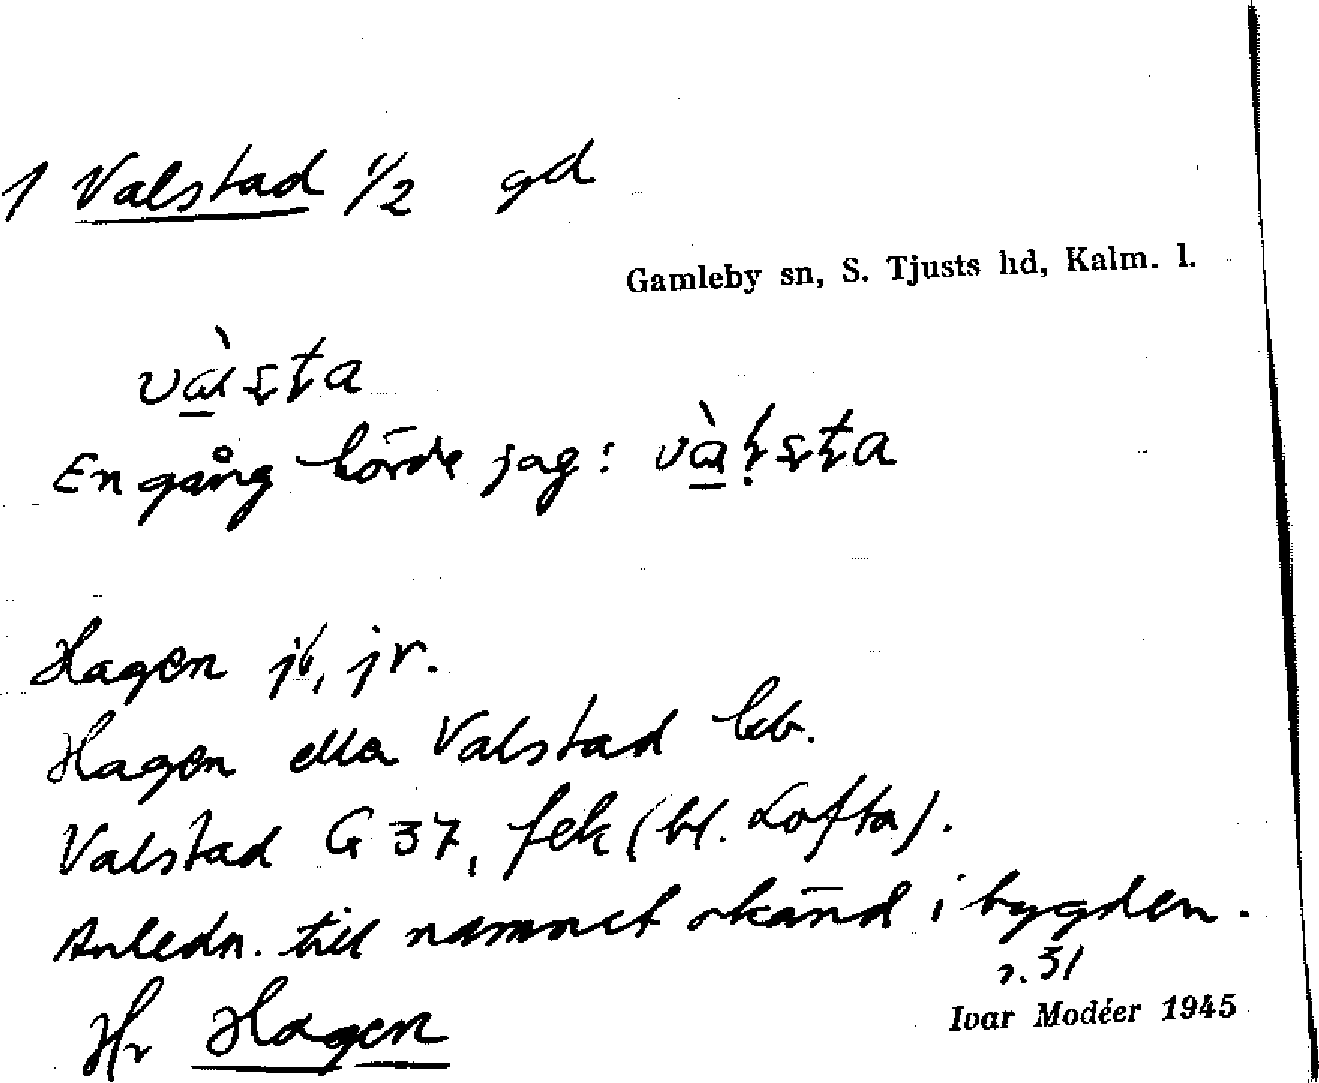 1 Valstad 1/2 gd
Gamleby sn, S. Tjusts hd, Kalm. l.
En gång hörde jag:
Hagen jb, jr.
Hagen eller Valstad kb.
Valstad G 37, fek (bl. Lofta).
Anledn. till namnet okänd i bygden.
s. 31
Hr Hagen
Ivar Modéer 1945